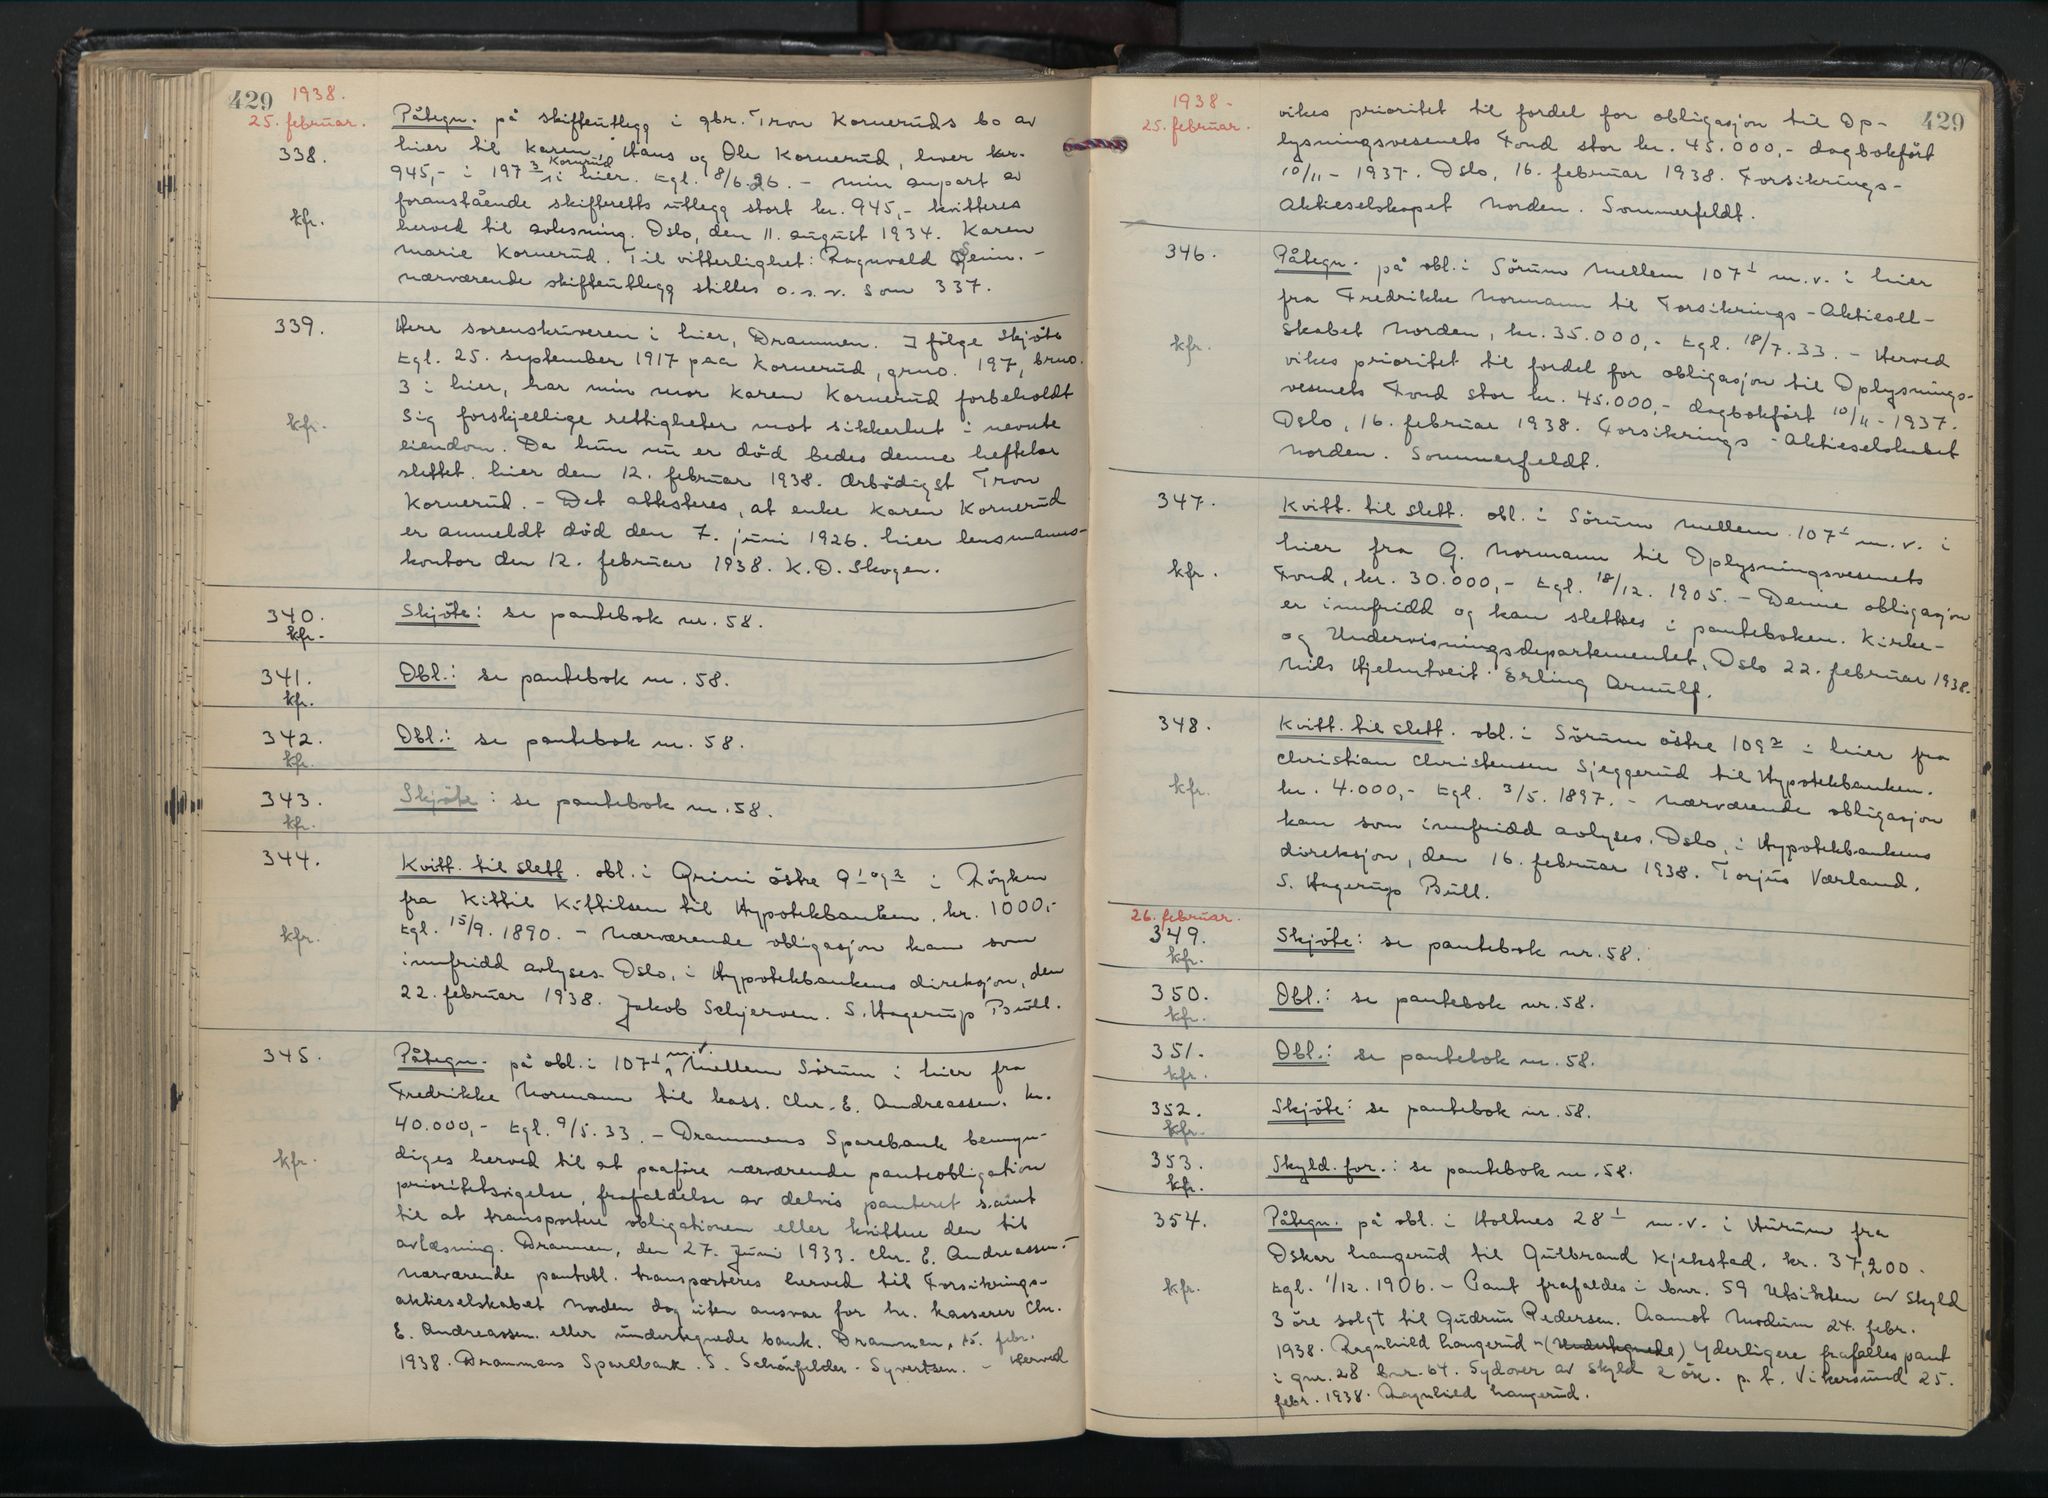 429 1938.
25. februar.
338.
kfr.
Påtegn. på skifteutlegg i gbr. Tron Kornerüds bo av
hier til Karen, Hans og Ole Kornerüd, hver kr.
945,- i 197 3 Kornrüd i hier. tgl. 8/6.26. - Min anpart av
foranstående skifteretts utlegg stort kr. 945,- kvitteres
herved til avlesning. Oslo, den 11. august 1934. Karen
Marie Kornerüd. Til vitterlighet: Ragnvald
nærværende skifteutlegg stilles o.s.v. som 337.
339.
kfr.
Herr sorenskriveren i hier, Drammen. I følge skjöte
tgl. 25. september 1917 paa Kornerüd, grno. 197, brno.
3 i hier, har min mor Karen Kornerüd forbeholdt
sig forskjellige rettigheter mot sikkerhet i nevnte
eiendom. Da hun nu er død bedes denne heftelse
slettet. hier den 12. februar 1938. Ærbödigst Tron
Kornerüd. - Det attesteres, at enke Karen Kornerüd
er anmeldt död den 7. juni 1926. hier lensmanns-
kontor den 12. februar 1938. K.O. Skogen.
340.
kfr.
Skjöte: se pantebok nr. 58.
341.
kfr.
Obl.: se pantebok nr. 58.
342.
kfr.
Obl.: se pantebok nr. 58.
343.
kfr.
Skjöte: se pantebok nr. 58.
344.
kfr.
Kvitt. til slett. obl. i Grini östre 9 1 og 2 i Röyken
fra Kittil Kittilsen til Hypotekbanken. kr. 1000,-
tgl. 15/9. 1890. - Nærværende obligasjon kan som
innfridd avlyses. Oslo, i Hypotekbankens direksjon, den
22. februar 1938. Jakob Schjerven. S. Hagerup Bull.
345.
kfr.
Påtegn. på obl. i 107 1 m.v. Mellem Sörum i hier fra
Fredrikke Normann til kass. Chr. E. Andreassen. kr.
40.000,- tgl. 9/5.33. - Drammens Sparebank bemyn-
diges herved til at paaföre nærværende panteobligation
prioritetsvigelse, frafaldelse av delvis panteret samt
til at transportere obligationen eller kvittere den til
avlæsning. Drammen, den 27. Juni 1933. Chr. E. Andreassen.-
Nærværende pantobl. transporteres herved til Forsikrings-
aktieselskabet Norden dog uten ansvar for hr. kasserer Chr.
E. Andreassen eller undertegnede bank. Drammen, 15. febr.
1938. Drammens Sparebank. S. Schönfelder. Syvertsen. - Herved
1938-
25. februar.
429
vikes prioritet til fordel for obligasjon til Op-
lysningsvesenets Fond stor kr. 45.000,- dagbokfört
10/11 - 1937. Oslo, 16. februar 1938. Forsikrings-
Aktieselskapet Norden. Sommerfeldt.
346.
kfr.
Påtegn. på obl. i Sörum Mellem 107 1 m.v. i hier
fra Fredrikke Normann til Forsikrings-Aktiesel-
skabet Norden, kr. 35.000,- tgl. 18/7.33. - Herved
vikes prioritet til fordel for obligasjon til Oplysnings-
vesenets Fond stor kr. 45.000,- dagbokfört 10/11 - 1937.
Oslo, 16. februar 1938. Forsikrings-Aktieselskabet
Norden. Sommerfeldt.
347.
kfr.
Kvitt. til slett. obl. i Sörum Mellem 107 1 m.v. i
hier fra G. Normann til Oplysningsvesenets
Fond, kr. 30.000,- tgl. 18/12. 1905. - Denne obligasjon
er innfridd og kan slettes i panteboken. Kirke-
og Undervisningsdepartementet, Oslo 22. februar 1938.
Nils Hjelmtveit. Erling Arnulf.
348.
kfr.
Kvitt. til slett. obl. i Sörum östre 109 2 i hier fra
Christian Christensen Sjeggerud til Hypotekbanken.
kr. 4.000,- tgl. 3/5. 1897. - Nærværende obligasjon
kan som innfridd avlyses. Oslo, i Hypotekbankens
direksjon, den 16. februar 1938. Torjus Værland.
S. Hagerup Bull.
26. februar.
349.
kfr.
Skjöte: se pantebok nr. 58.
350.
kfr.
Obl.: se pantebok nr. 58.
351.
kfr.
Obl.: se pantebok nr. 58.
352.
kfr.
Skjöte: se pantebok nr. 58.
353.
kfr.
Skyld.for.: se pantebok nr. 58.
354.
kfr.
Påtegn. på obl. i Holtnes 28 1 m.v. i Hurum fra
Oskar Langerud til Gulbrand Kjekstad. kr. 37,200.
tgl. 1/12. 1906. - Pant frafaldes i bnr. 59 Utsikten av skyld
3 öre solgt til Gudrun Pedersen. Aamot Modum 24. febr.
1938. Ragnhild Langerud - (Undertegnede) Yderligere frafalles pant
i gnr. 28 bnr. 64. Sydover av skyld 2 öre. p.t. Vikersund 25.
febr. 1938. Ragnhild Langerud.